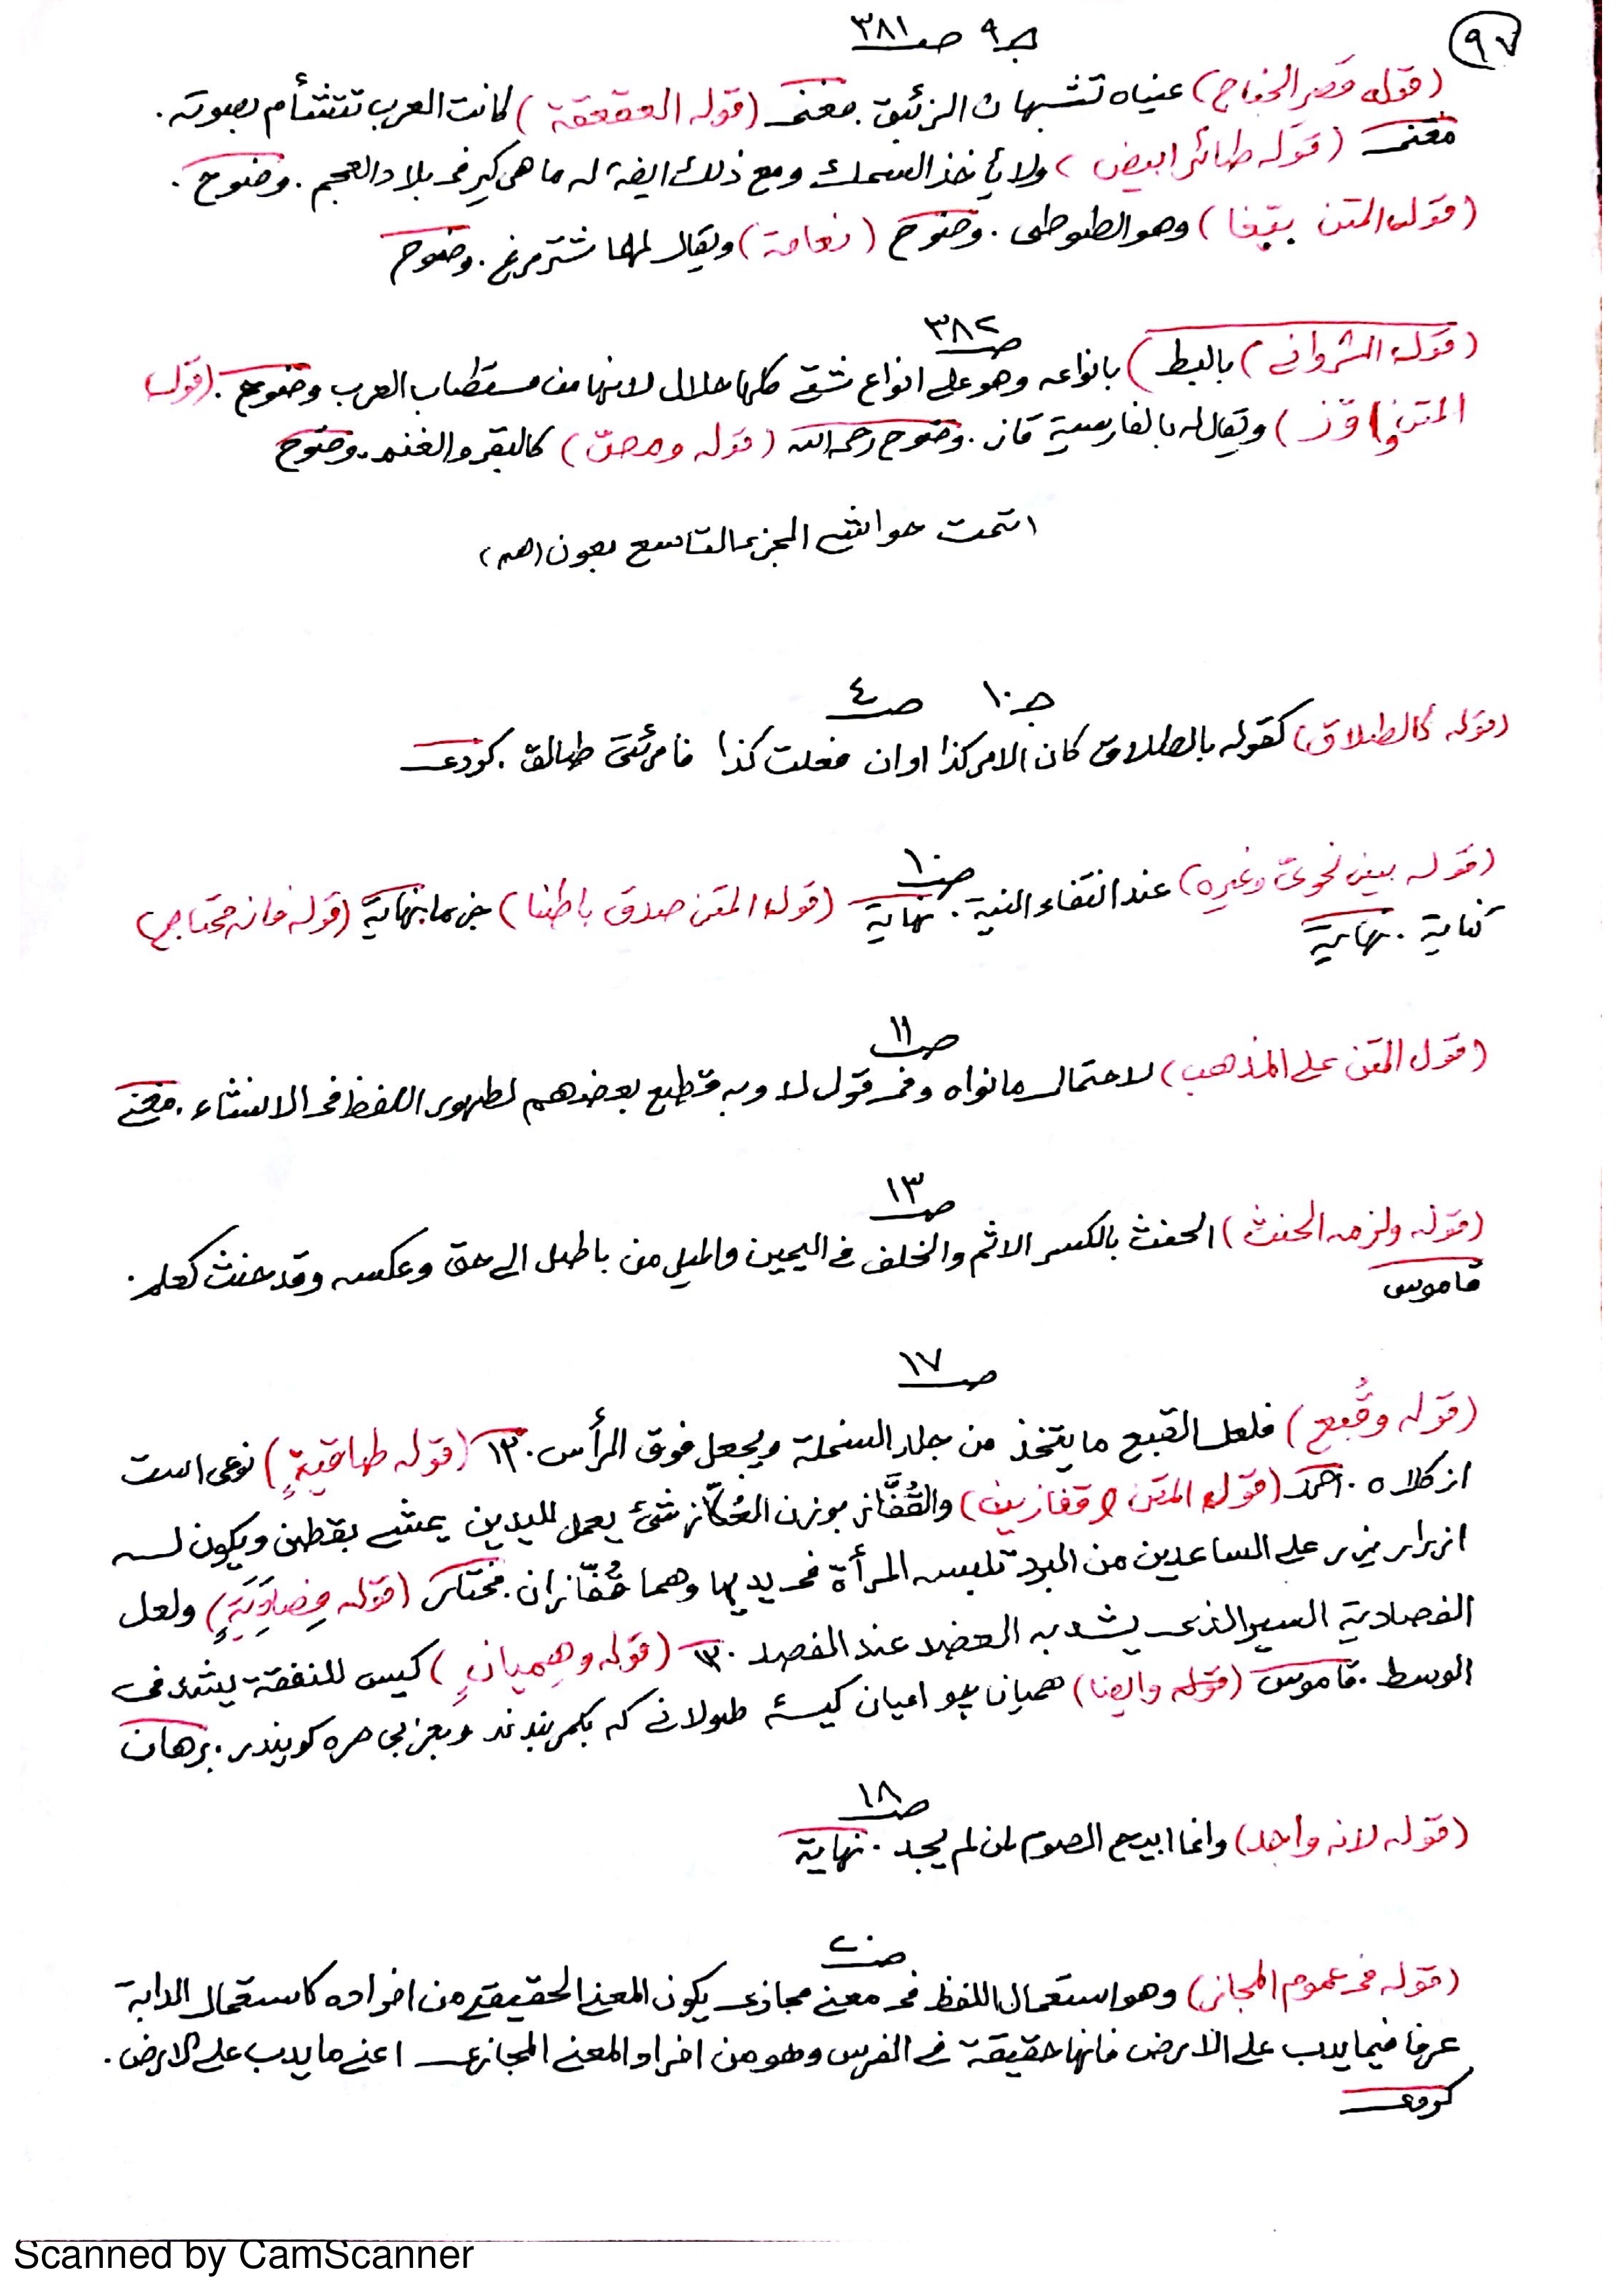 ٩٧
جـ ٩ صـ ٣٨١
(قوله قصير الجناح) عيناه تشبهان الزئبق. مغنى (قوله العقعقة) كانت العرب تتشأم بصوته.
مغنى (قوله طائر ابيض) ولا يأخذ السمك ومع ذلك ايضا له ماهى كير فى بلاد العجم. وضوح.
(قوله المتن ببّغا) وهو الطوطى. وضوح (نعامة) ويقال لها شترمرغ. وضوح
صـ ٣٨٢
(قوله الشروانى) بالبط) بانواعه وهو على انواع شتى كلها حلال لانها من مستطاب العرب وضوح. (قول
المتن واوّز) ويقال له بالفارسية قاز. وضوح رحمه الله (قوله) كالبقر والغنم. وضوح
اتمت حواشى الجزء التاسع بعون الله
جـ ١٠ صـ ٤
(قوله كالطلاق) كقوله بالطلاق كان الامر كذا او ان فعلت كذا فامرئتى طالق. كردى
صـ ١٠
(قوله بين نحوىّ وغيره) عند انتفاء النية. نهاية (قوله المتن صدق باطنا) جزما نهاية (قوله فانه محتاج)
كناية. نهاية
صـ ١١
(قول المتن على المذهب) لاحتمال ما نواه وفى قول لا وبه قطع بعضهم لظهور اللفظ فى الانشاء. مغنى
صـ ١٣
(قوله ولزمه الحنث) الحنث بالكسر الاثم والخلف فى اليمين والميل من باطل الى حق وعكسه وقد حنث كعلم.
قاموس
صـ ١٧
(قوله وقُبع) فلعل القبع ما يتخذ من جلد السخلة ويجعل فوق الرأس. (قوله طاقيةٍ) نوعى است
از كلاه. احمد (قوله المتن او قفازين) والقُفَّاز بوزن العُكّاز شئ يعمل لليدين يحشى بقطن ويكون له
ازرار يزر على الساعدين من البرد تلبسه المرأة فى يديها وهما قُفّازان. مختار (قوله فِصَادِيَةٍ) ولعل
الفصادية السير الذى يشد به العضد عند الفصد. (قوله وهِميانٍ) كيس للنفقة يشد فى
الوسط. قاموس (قوله وايضا) هميان اميان كيسهٔ طولانى كه بكمر بندند وبعربى صره كويند. برهان
صـ ١٨
(قوله لانه واجد) وانما ابيح الصوم لمن لم يجد. نهاية
صـ ٢٠
(قوله فى عموم المجاز) وهو استعمال اللفظ فى معنى مجازى يكون المعنى الحقيقى من افراده كاستعمال الدابة
عرفا فيما يدب على الارض فانها حقيقة فى الفرس وهو من افراد المعنى المجازى اعنى ما يدب على الارض.
كردى
Scanned by CamScanner